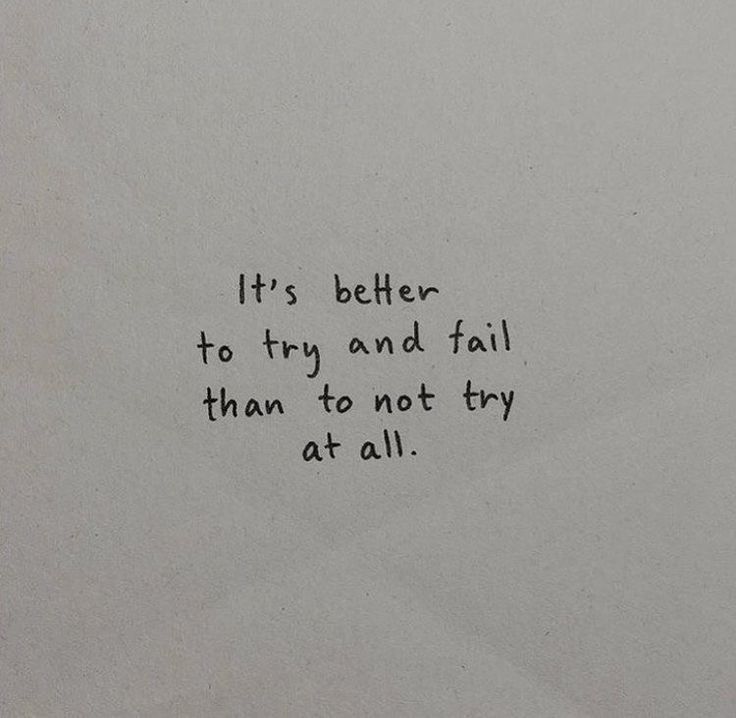 It's better
to try and fail
than to not try
at all.